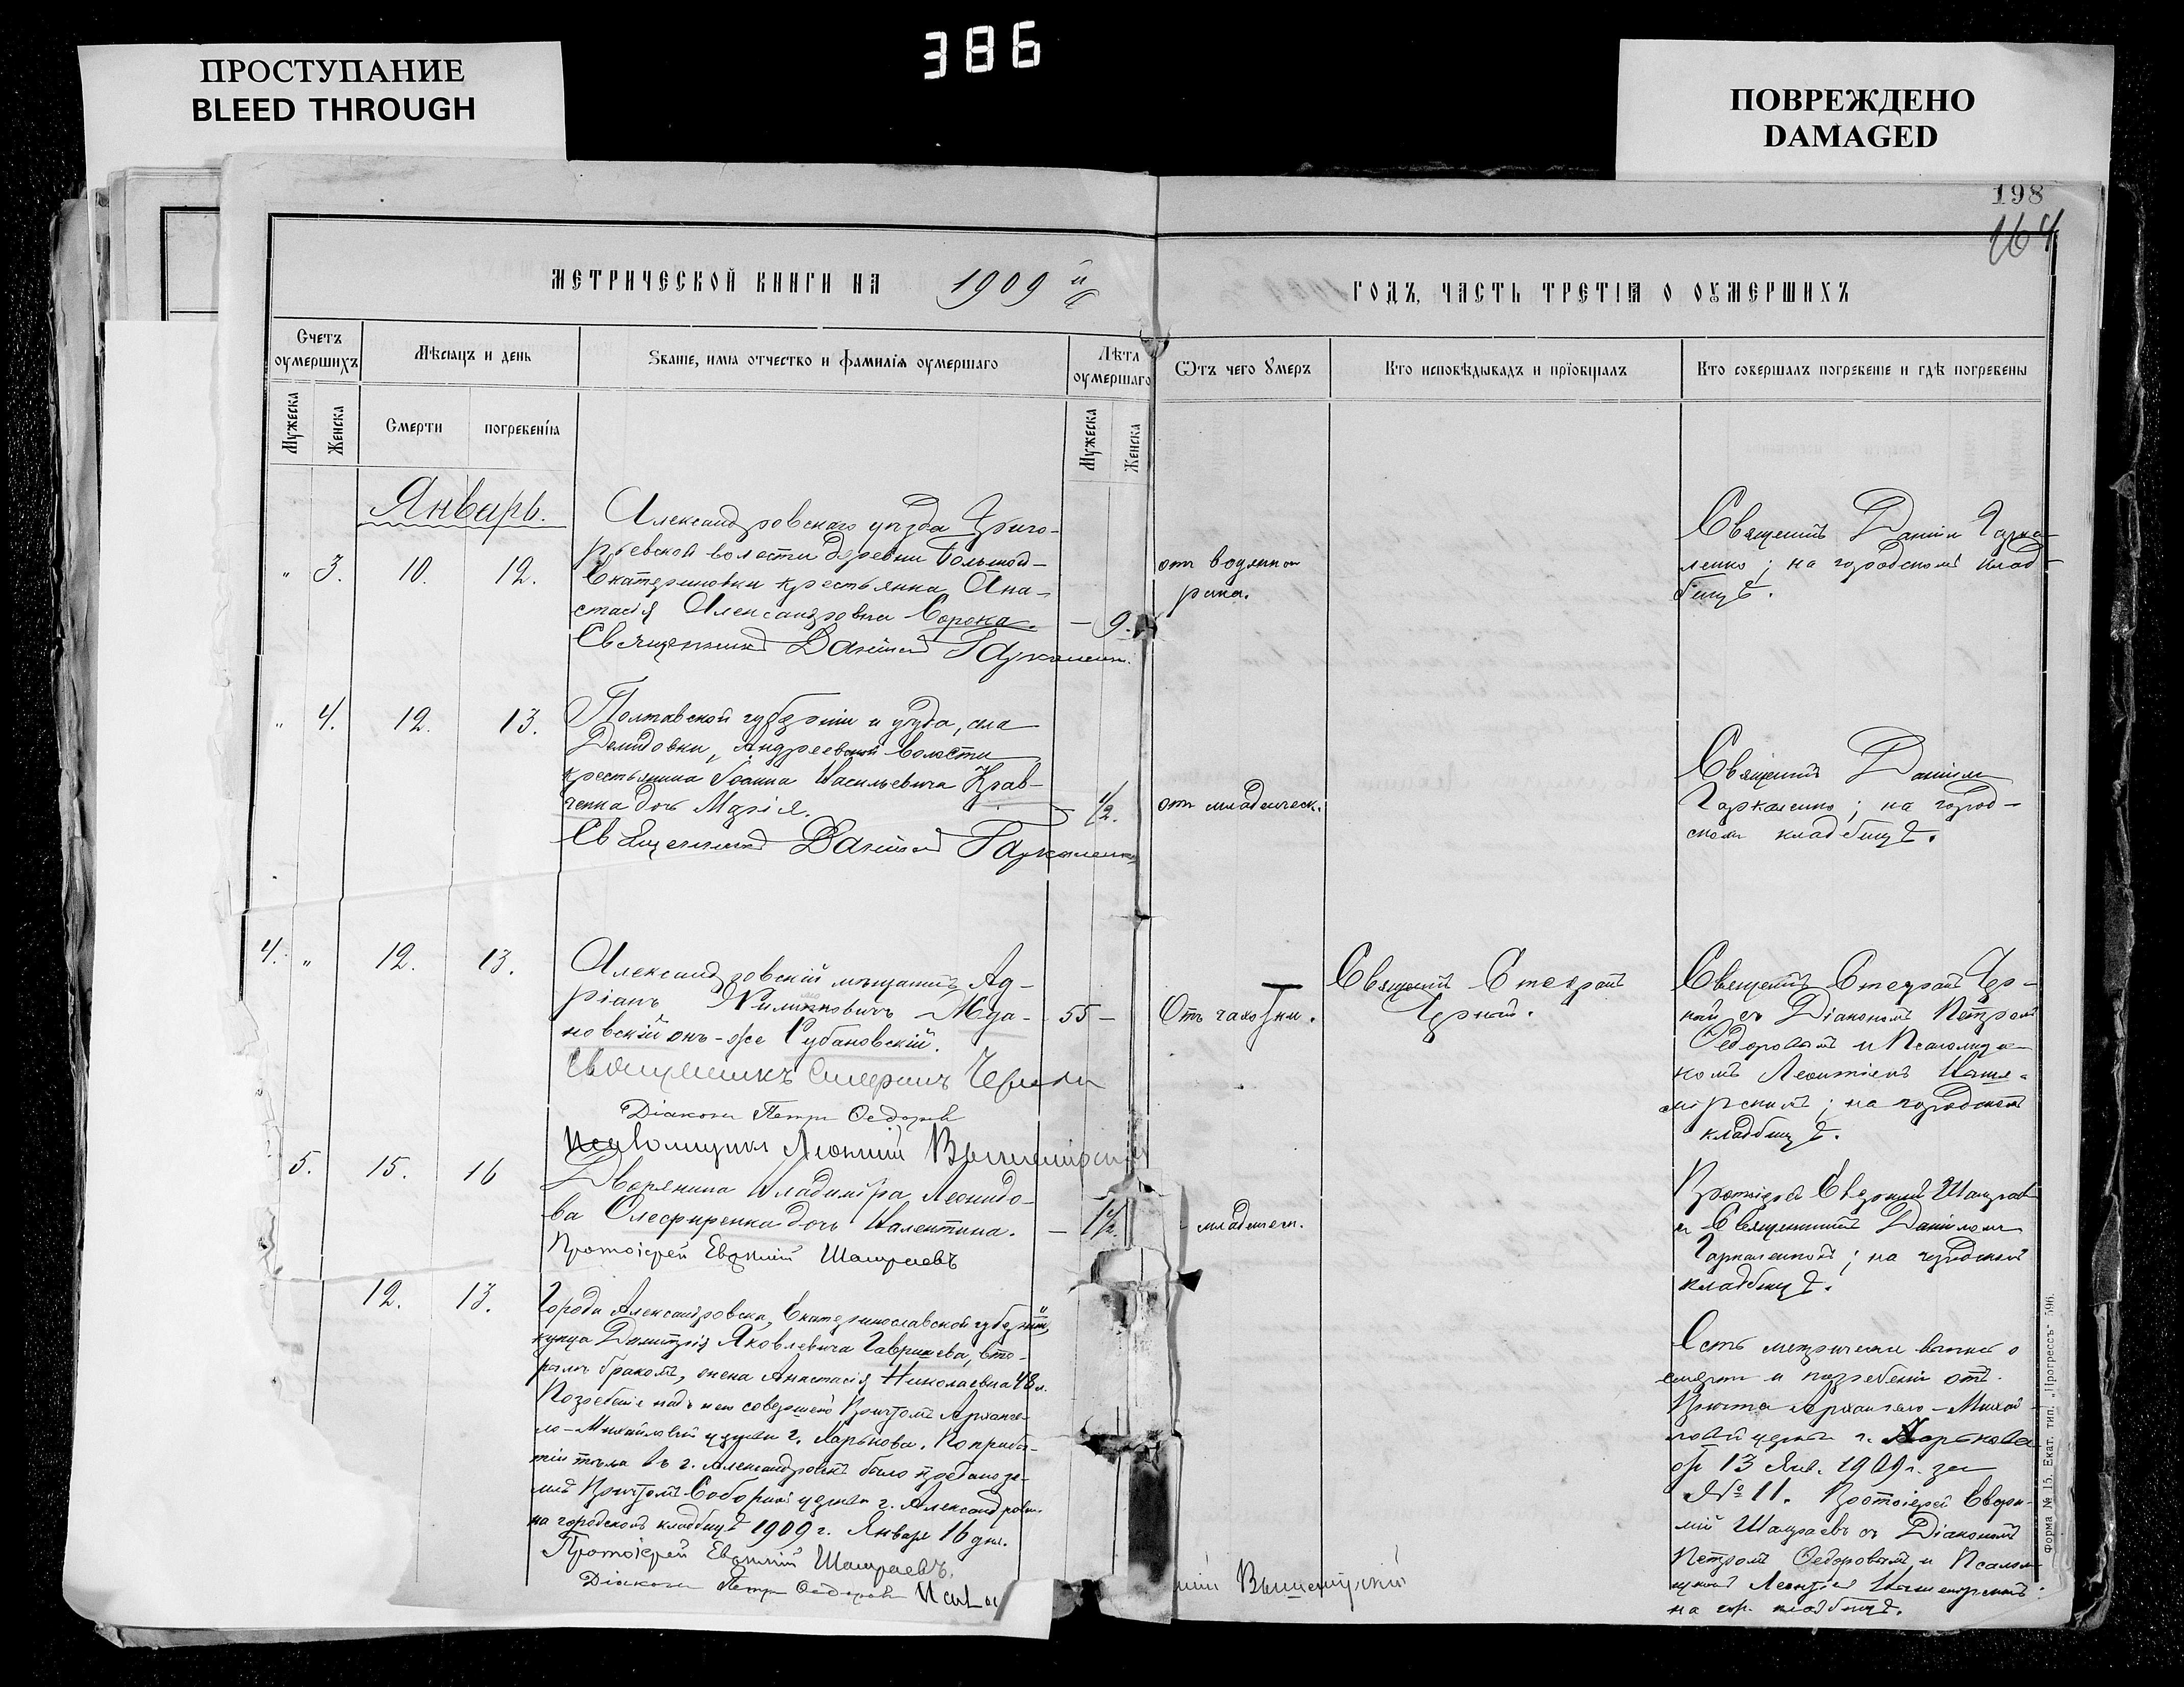 386
ПРОСТУПАНИЕ
BLEED THROUGH
ПОВРЕЖДЕНО
DAMAGED
198
164
МЕТРИЧЕСКОЙ КНИГИ НА 1909 й
ГОДЪ, ЧАСТЬ ТРЕТІѦ О ОУМЕРШИХЪ
Счетъ оумершихъ
Мѣсяцъ и день
Званіе, имѧ отчество и фамиліѧ оумершаго
Лѣта оумершаго
Ѿтъ чего Умеръ
Кто исповѣдывалъ и прїобщалъ
Кто совершалъ погребеніе и гдѣ погребены
Мужеска
Женска
Смерти
погребеніѧ
Мужеска
Женска
Январь.
" 3. 10. 12.
Александровскаго уѣзда Григо-
рьевской волости деревни Большой-
Екатериновки крестьянка Ана-
стасія Александровна Сорока.
— 9.
Священникъ Даніилъ Гаркаленко
отъ водяного
рака.
Священникъ Даніилъ Гарка-
ленко; на городскомъ клад-
бищѣ.
" 4. 12. 13.
Полтавской губерніи и уѣзда, села
Демидовки, Андреевской волости
крестьянина Іоанна Васильевича Крав-
ченка дочь Марія.
— 1/2.
Священникъ Даніилъ Гаркаленко
отъ младенческ.
Священникъ Даніилъ
Гаркаленко; на город-
скомъ кладбищѣ.
4. " 12. 13.
Александровскій мѣщанинъ Ад-
ріанъ
новскій онъ-же Рубановскій.
55 —
Священникъ Стефанъ Черный
Діаконъ Петръ Ѳедоровъ
Псаломщикъ Леонтій Вышемірскій
Отъ чахотки.
Священникъ Стефанъ
Черный.
Священникъ Стефанъ Чер-
ный съ Діакономъ Петромъ
Ѳедоровымъ и Псаломщи-
комъ Леонтіемъ Выше-
мірскимъ; на городскомъ
кладбищѣ.
5. 15. 16
Дворянина Владиміра Леонидо-
ва Олесфиренка дочь Валентина.
— 1 1/2.
Протоіерей Евѳимій Шамраевъ
младенческ.
Протоіерей Евѳимій Шамраевъ
и Священникъ Даніиломъ
Гаркаленкомъ; на городскомъ
кладбищѣ.
12. 13.
Города Александровска, Екатеринославской губерніи,
купца Димитрія Яковлевича Гаврилева, вто-
рымъ бракомъ, жена Анастасія Николаевна 48 л.
Погребеніе надъ нею совершено Причтомъ Арханге-
ло-Михайловской церкви г. Харькова. По прибы-
тіи тѣла въ г. Александровскъ было предано зе-
млѣ Причтомъ Соборной церкви г. Александровска
на городскомъ кладбищѣ 1909 г. Января 16 дня.
Протоіерей Евѳимій Шамраевъ.
Діаконъ Петръ Ѳедоровъ
Вышемірскій
Есть метрическая выпись о
смерти и погребеніи отъ
Причта Архангело-Михай-
ловской церкви г. Харькова
отъ 13 Янв. 1909 г. за
№ 11. Протоіерей Евѳи-
мій Шамраевъ съ Діакономъ
Петромъ Ѳедоровымъ и Псалом-
щикомъ Леонтіемъ Вышемірскимъ
на гор. кладбищѣ.
Форма № 15. Екат. тип. „Прогрессъ" 596.